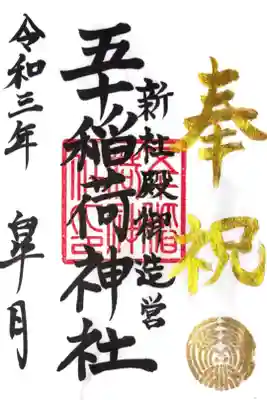 奉祝
新社殿御造営
五十稲荷神社
令和三年
皐月